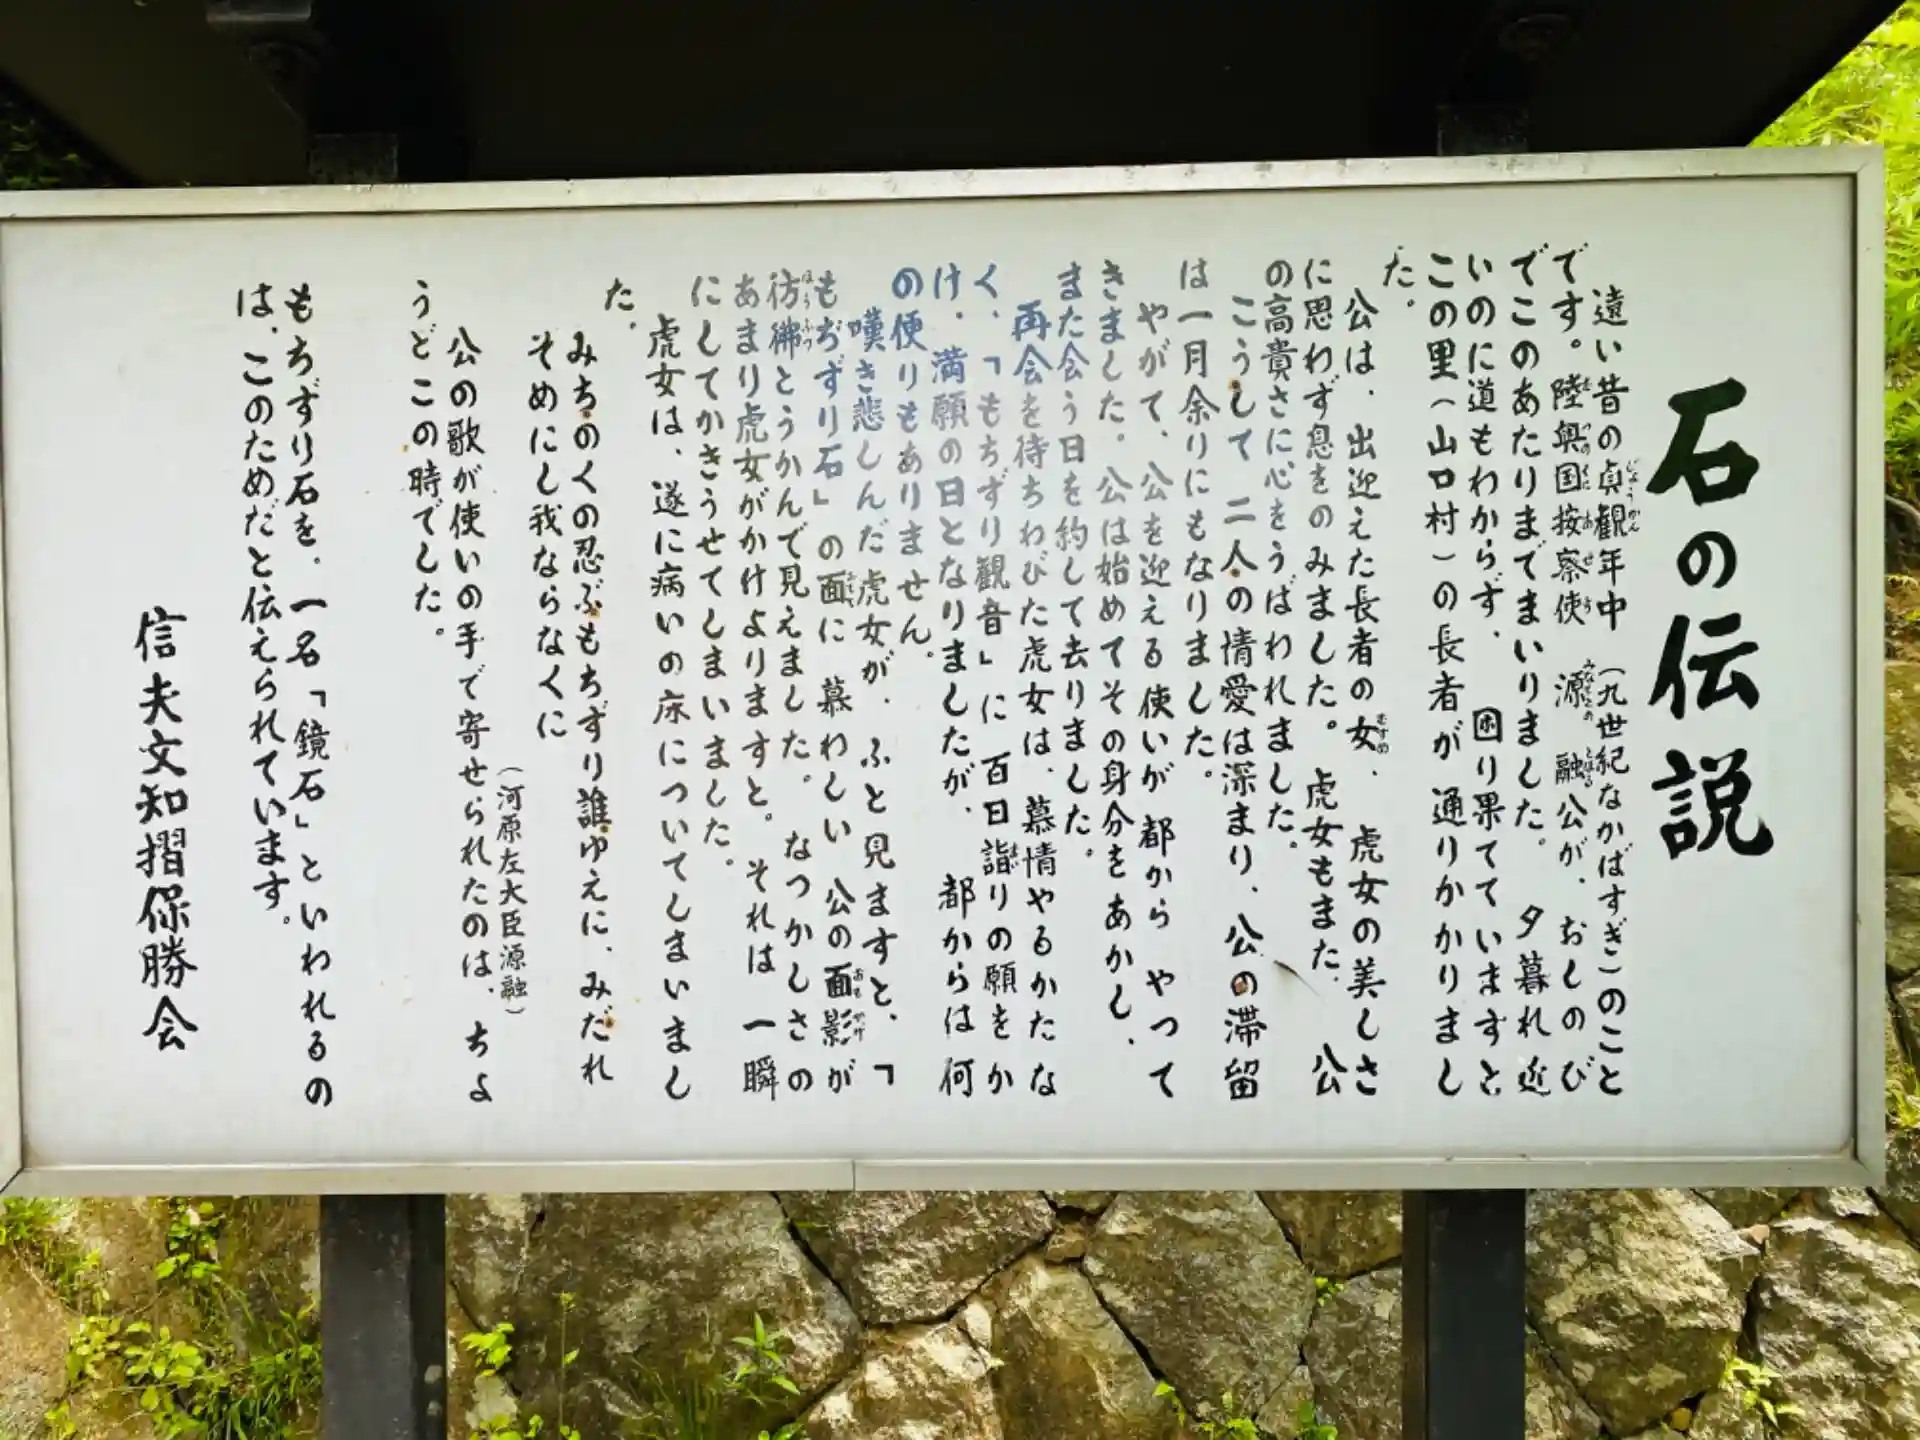 石の伝説
遠い昔の貞観年中（九世紀なかばすぎ）のこと
です。陸奥国按察使　源　融公が、おしのび
でこのあたりまでまいりました。夕暮れ近
いのに道もわからず、困り果てていますと、
この里（山口村）の長者が通りかかりまし
た。
公は、出迎えた長者の女、虎女の美しさ
に思わず息をのみました。虎女もまた、公
の高貴さに心をうばわれました。
こうして二人の情愛は深まり、公の滞留
は一月余りにもなりました。
やがて、公を迎える使いが都からやって
きました。公は始めてその身分をあかし、
また会う日を約して去りました。
再会を待ちわびた虎女は、慕情やるかたな
く、「もちずり観音」に百日詣りの願をか
け、満願の日となりましたが、都からは何
の便りもありません。
嘆き悲しんだ虎女が、ふと見ますと、「
もぢずり石」の面に慕わしい公の面影が
彷彿とうかんで見えました。なつかしさの
あまり虎女がかけよりますと。それは一瞬
にしてかきうせてしまいました。
虎女は、遂に病いの床についてしまいまし
た。
みちのくの忍ぶもちずり誰ゆえに、みだれ
そめにし我ならなくに
（河原左大臣源融）
公の歌が使いの手で寄せられたのは、ちょ
うどこの時でした。
もちずり石を、一名「鏡石」といわれるの
は、このためだと伝えられています。
信夫文知摺保勝会